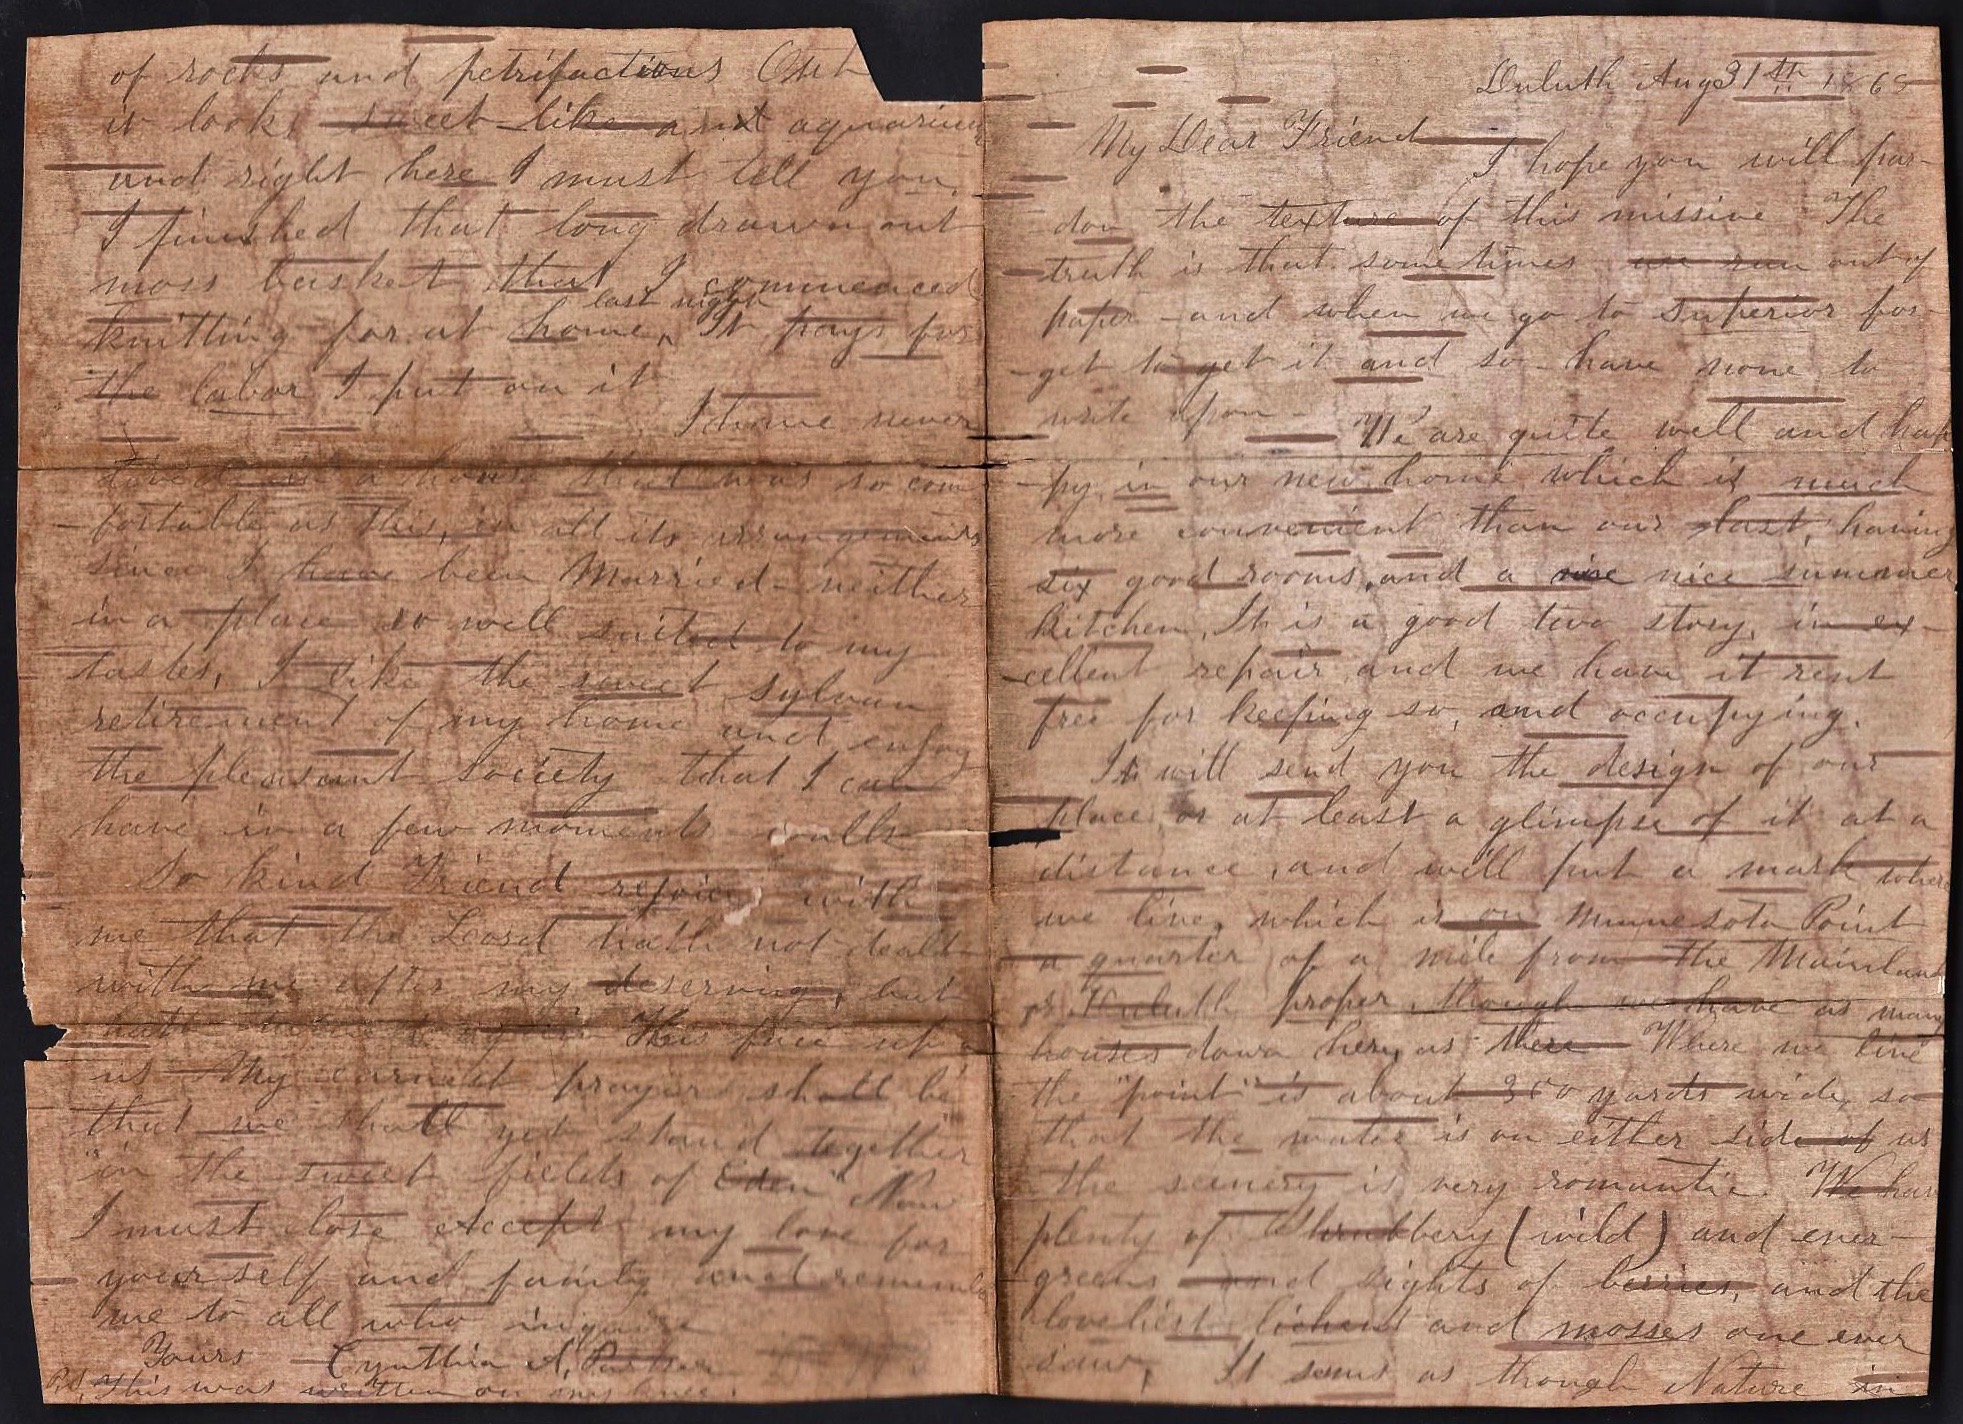 Duluth Aug 31th 1868
My Dear Friend
I hope you will par-
don the texture of this missive The
truth is that some times we run out of
paper - and when we go to Superior for-
-get to get it and so - have none to
write upon - We are quite well and hap
-py, in our new home which is much
more convenient than our last, having
six good rooms, and a nice summer
kitchen, It is a good two story, in ex-
-cellent repair, and we have it rent
free for keeping so, and occupying.
I will send you the design of our
place, or at least a glimpse of it at a
distance, and will put a mark where
we live, which is on Minnesota Point
a quarter of a mile from the Mainland
or Duluth proper, though we have as many
houses down here, as there Where we live
the "point" is about 300 yards wide, so
that the water is on either side of us
the scenery is very romantic. We have
plenty of Shrubbery (wild) and ever-
-greens and sights of berries, and the
loveliest lichens and mosses one ever
saw, It seems as though Nature in
of rocks and petrifactions Out
it looks sweet like an aquarium
and right here I must tell you,
I finished that long drawn out
moss basket that I commenced
knitting for at home, last night It pays for
the labor I put on it
I have never
lived in a house that was so com
-fortable as this, in all its arrangements
since I have been Married - neither
in a place so well suited to my
tastes, I like the sweet sylvan
retirement of my home and enjoy
the pleasant society that I can
have in a few moments walk
So kind Friend rejoice with
me that the Lord hath not dealt
with me after my deserving, but
hath His face
us My earnest prayer shall be
that we shall yet stand together
"in the sweet fields of Eden" Now
I must close accept my love for
yourself and family and remember
me to all who inquire
Yours Cynthia A.
P.S. This was written on my knee.